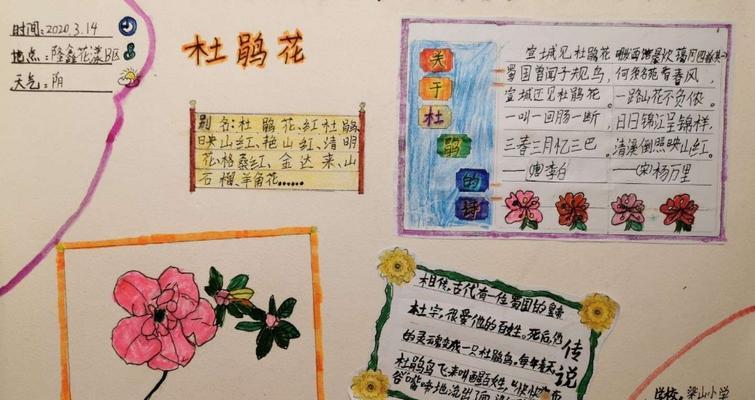 时间:2020.3.14
地点:隆鑫花漾B区
天气:阴
杜鹃花
别名:杜鹃花、红杜鹃、
映山红、艳山红、清明
花、格桑红、金达来、山
石榴、羊角花……
关于杜鹃的诗
宣城见杜鹃花
蜀国曾闻子规鸟,
宣城还见杜鹃花。
一叫一回肠一断,
三春三月忆三巴。
——(唐)李白
何须名苑看春风,
一路山花不负侬。
日日锦江呈锦样,
清溪倒照映山红。
——(宋)杨万里
传说
相传,古代有一位蜀国的皇帝
杜宇,很爱他的百姓,死后他
的灵魂变成一只杜鹃鸟,每年春天
杜鹃鸟飞来叫醒百姓
谷
啼地流出了
学校:梁山小学